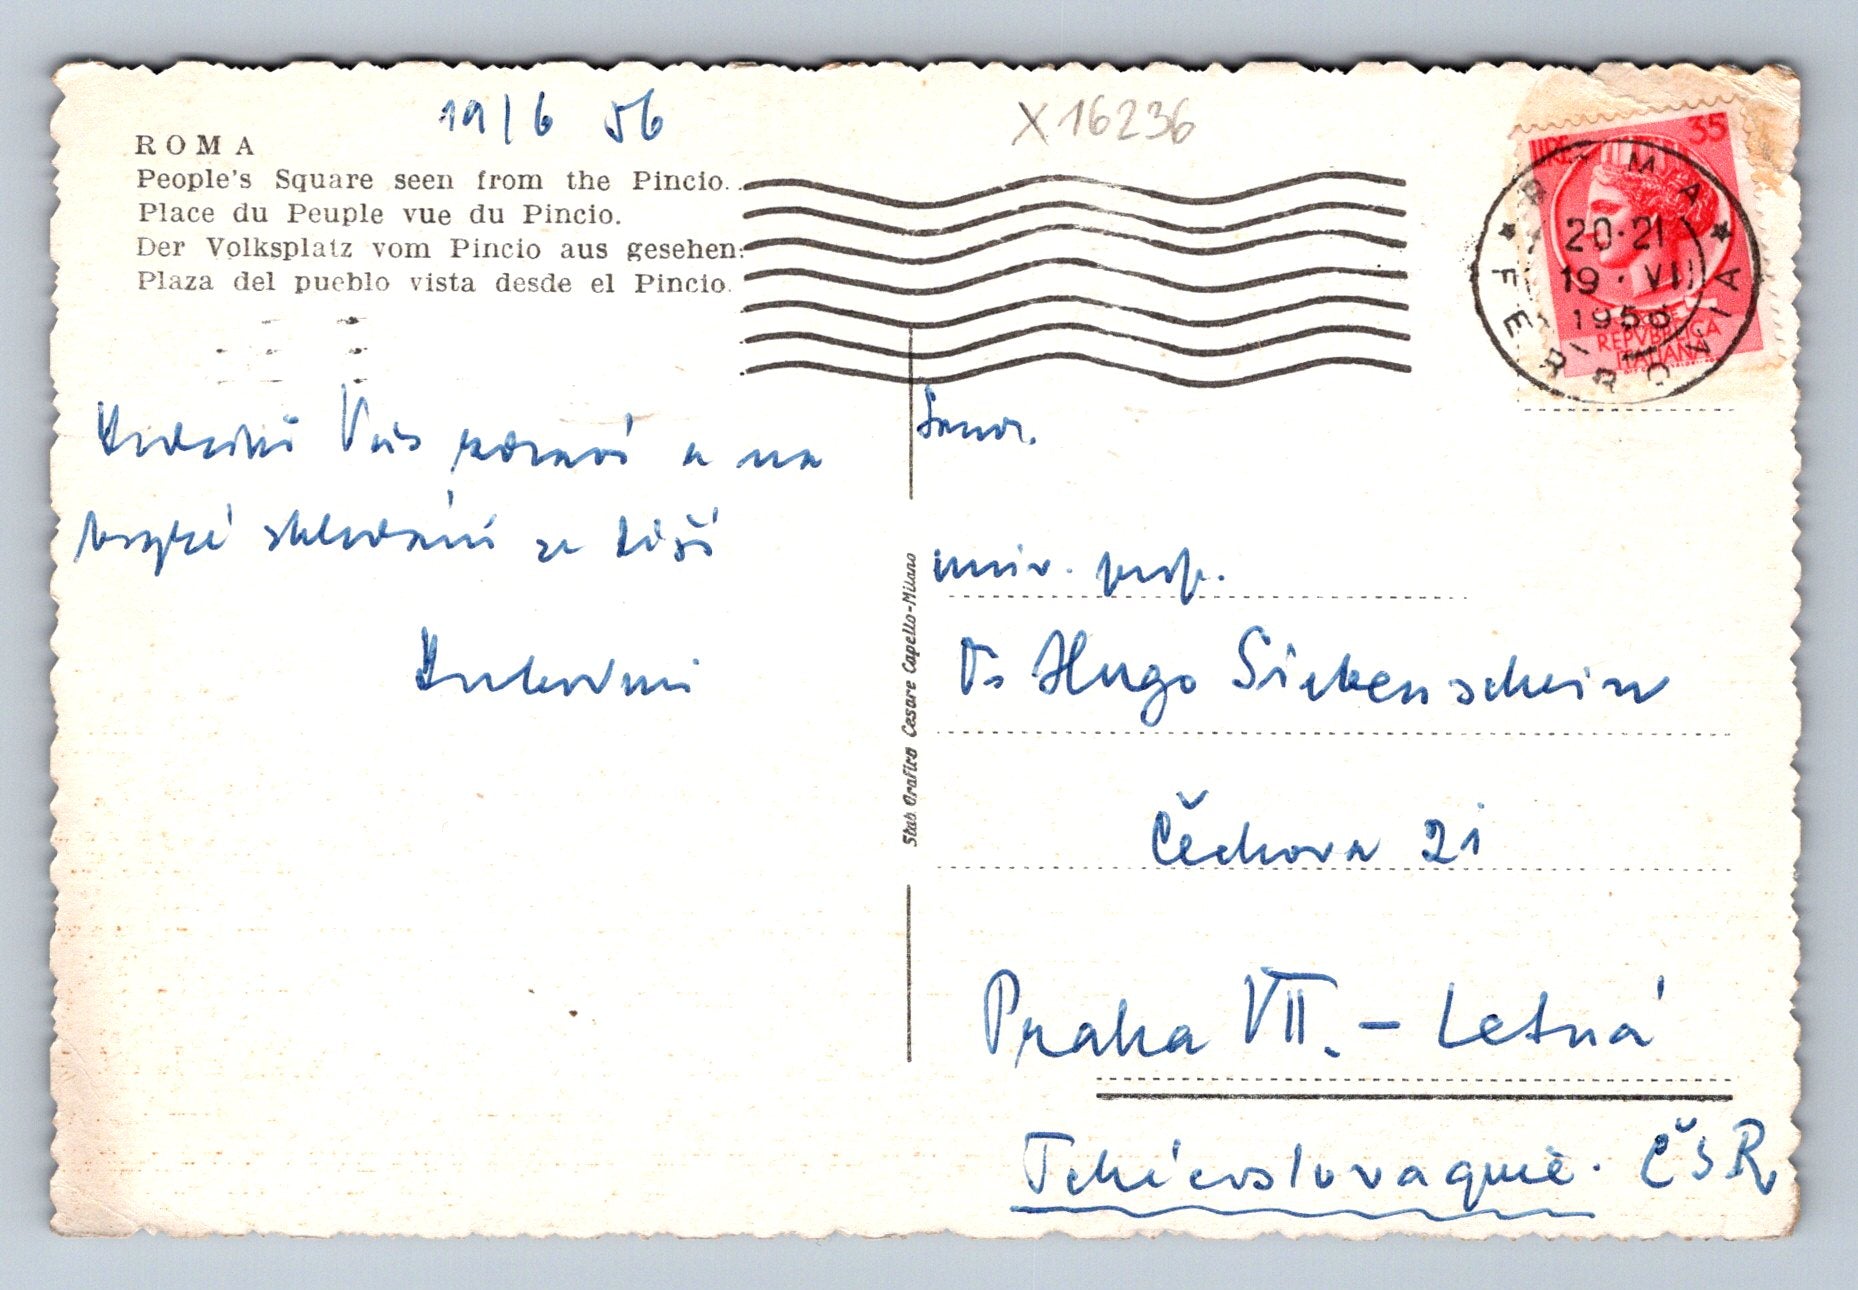 19/6 56
X 16236
ROMA
People's Square seen from the Pincio.
Place du Peuple vue du Pincio.
Der Volksplatz vom Pincio aus gesehen.
Plaza del pueblo vista desde el Pincio.
LIRE 35
REPVBBLICA
ITALIANA
ROMA FERROVIA
20-21
19·VI
1956
Srdečně Vás zdraví a na
brzké shledání se těší
univ. prof.
Dr Hugo Siebenschein
Čechova 21
Praha VII. - Letná
Tchécoslovaquie. ČSR
Stab Grafico Cesare Capello-Milano